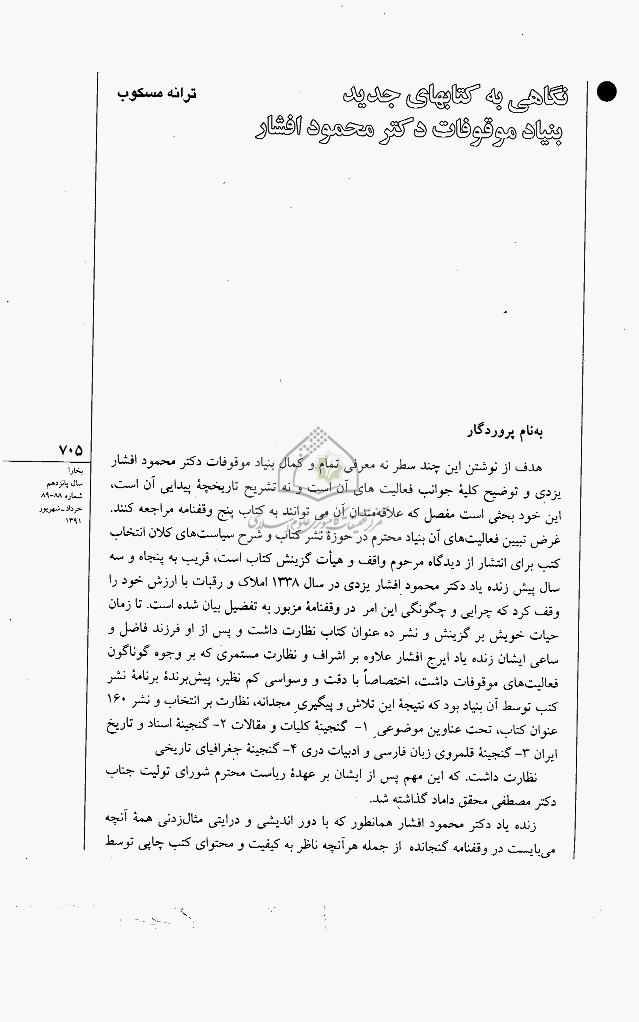 نگاهی به کتابهای جدید
بنیاد موقوفات دکتر محمود افشار
ترانه مسکوب
به‌نام پروردگار
هدف از نوشتن این چند سطر نه معرفی تمام و کمال بنیاد موقوفات دکتر محمود افشار
یزدی و توضیح کلیهٔ جوانب فعالیت های آن است و نه تشریح تاریخچهٔ پیدایی آن است،
این خود بحثی است مفصل که علاقه‌مندان آن می توانند به کتاب پنج وقفنامه مراجعه کنند.
غرض تبیین فعالیت‌های آن بنیاد محترم در حوزهٔ نشر کتاب و شرح سیاست‌های کلان انتخاب
کتب برای انتشار از دیدگاه مرحوم واقف و هیأت گزینش کتاب است، قریب به پنجاه و سه
سال پیش زنده یاد دکتر محمود افشار یزدی در سال ۱۳۳۸ املاک و رقبات با ارزش خود را
وقف کرد که چرایی و چگونگی این امر در وقفنامهٔ مزبور به تفضیل بیان شده است. تا زمان
حیات خویش بر گزینش و نشر ده عنوان کتاب نظارت داشت و پس از او فرزند فاضل و
ساعی ایشان زنده یاد ایرج افشار علاوه بر اشراف و نظارت مستمری که بر وجوه گوناگون
فعالیت‌های موقوفات داشت، اختصاصاً با دقت و وسواسی کم نظیر، پیش‌برندهٔ برنامهٔ نشر
کتب توسط آن بنیاد بود که نتیجهٔ این تلاش و پیگیری مجدانه، نظارت بر انتخاب و نشر ۱۶۰
عنوان کتاب، تحت عناوین موضوعی ۱- گنجینهٔ کلیات و مقالات ۲- گنجینهٔ اسناد و تاریخ
ایران ۳- گنجینهٔ قلمروی زبان فارسی و ادبیات دری ۴- گنجینهٔ جغرافیای تاریخی
نظارت داشت. که این مهم پس از ایشان بر عهدهٔ ریاست محترم شورای تولیت جناب
دکتر مصطفی محقق داماد گذاشته شد.
زنده یاد دکتر محمود افشار همانطور که با دور اندیشی و درایتی مثال‌زدنی همهٔ آنچه
می‌بایست در وقفنامه گنجانده از جمله هرآنچه ناظر به کیفیت و محتوای کتب چاپی توسط
۷۰۵
بخارا
سال پانزدهم
شماره ۸۸-۸۹
خرداد-شهریور
۱۳۹۱